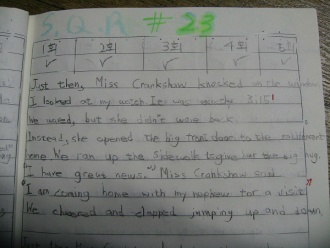 S.Q.R #23
1회 2회 3회 4회 5회
Just then, Miss Crankshaw knocked on the window
I looked at my watch It was exactly 3:15!
We waved, but she didn't wave back.
Instead, she opened the big front door to the
one We ran up the sidewalk to give her
"I have great news." Miss Crankshaw said
I am coming home with my nephew for a visit"
We cheered and clapped jumping up and down